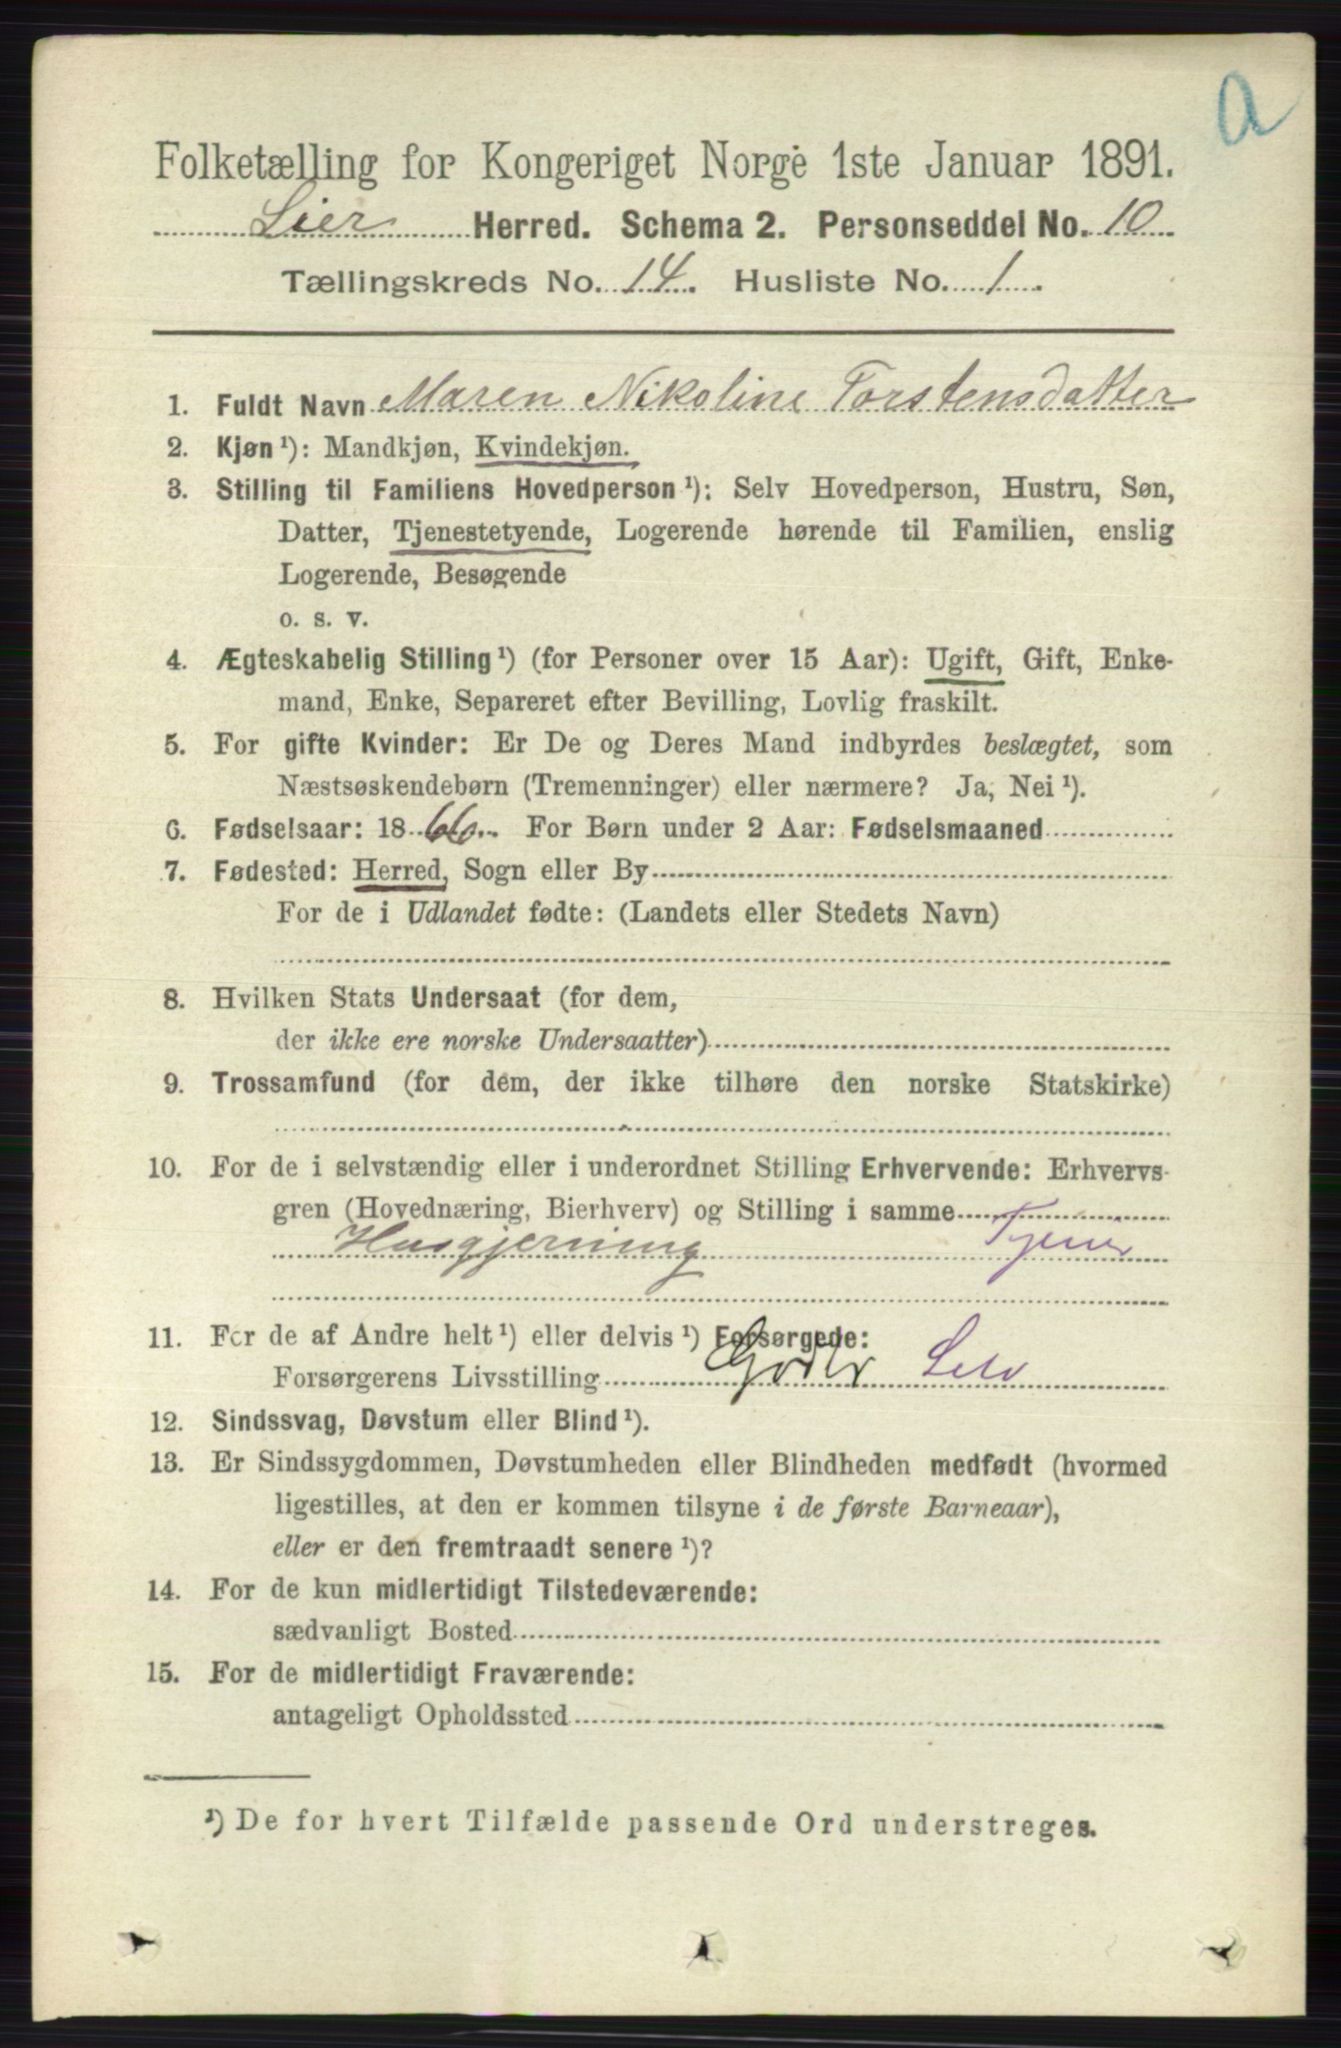 a
Folketælling for Kongeriget Norge 1ste Januar 1891.
Lier Herred. Schema 2. Personseddel No. 10
Tællingskreds No. 14. Husliste No. 1.
1. Fuldt Navn Maren Nikoline Torstensdatter
2. Kjøn ¹): Mandkjøn, Kvindekjøn.
3. Stilling til Familiens Hovedperson ¹): Selv Hovedperson, Hustru, Søn,
Datter, Tjenestetyende, Logerende hørende til Familien, enslig
Logerende, Besøgende
o. s. v.
4. Ægteskabelig Stilling ¹) (for Personer over 15 Aar): Ugift, Gift, Enke-
mand, Enke, Separeret efter Bevilling, Lovlig fraskilt.
5. For gifte Kvinder: Er De og Deres Mand indbyrdes beslægtet, som
Næstsøskendebørn (Tremenninger) eller nærmere? Ja, Nei ¹).
6. Fødselsaar: 1866. For Børn under 2 Aar: Fødselsmaaned
7. Fødested: Herred, Sogn eller By
For de i Udlandet fødte: (Landets eller Stedets Navn)
8. Hvilken Stats Undersaat (for dem,
der ikke ere norske Undersaatter)
9. Trossamfund (for dem, der ikke tilhøre den norske Statskirke)
10. For de i selvstændig eller i underordnet Stilling Erhvervende: Erhvervs-
gren (Hovednæring, Bierhverv) og Stilling i samme
Husgjerning Tjener
11. For de af Andre helt ¹) eller delvis ¹) Forsørgede:
Forsørgerens Livsstilling Selv
12. Sindssvag, Døvstum eller Blind ¹).
13. Er Sindssygdommen, Døvstumheden eller Blindheden medfødt (hvormed
ligestilles, at den er kommen tilsyne i de første Barneaar),
eller er den fremtraadt senere ¹)?
14. For de kun midlertidigt Tilstedeværende:
sædvanligt Bosted
15. For de midlertidigt Fraværende:
antageligt Opholdssted
¹) De for hvert Tilfælde passende Ord understreges.